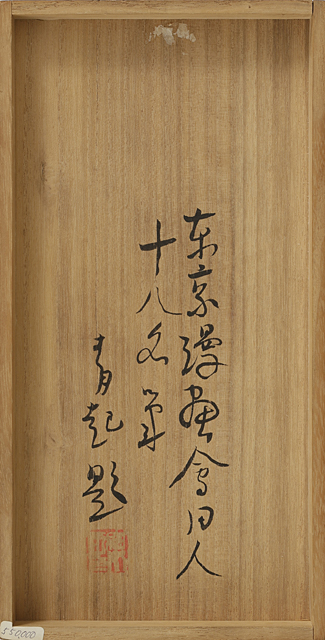 东京漫畫會同人
十八名筆
青起題
550,000